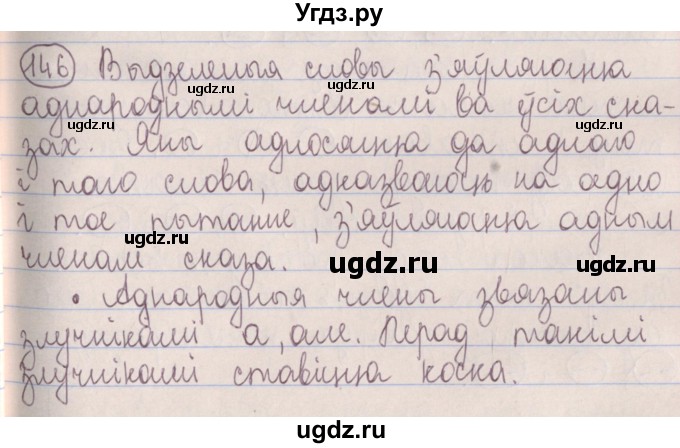 Угдз.ру
146 Выдзеленыя словы з'яўляюцца
аднароднымі членамі ва ўсіх ска-
зах. Яны адносяцца да аднаго
і таго слова, адказваюць на адно
і тое пытанне, з'яўляюцца адным
членам сказа.
• Аднародныя члены звязаны
злучнікамі а, але. Перад такімі
злучнікамі ставіцца коска.
ugdz.ru
ugdz.ru
ugdz.ru
ugdz.ru
ugdz.ru
ugdz.ru
ugdz.ru
ugdz.ru
ugdz.ru
ugdz.ru